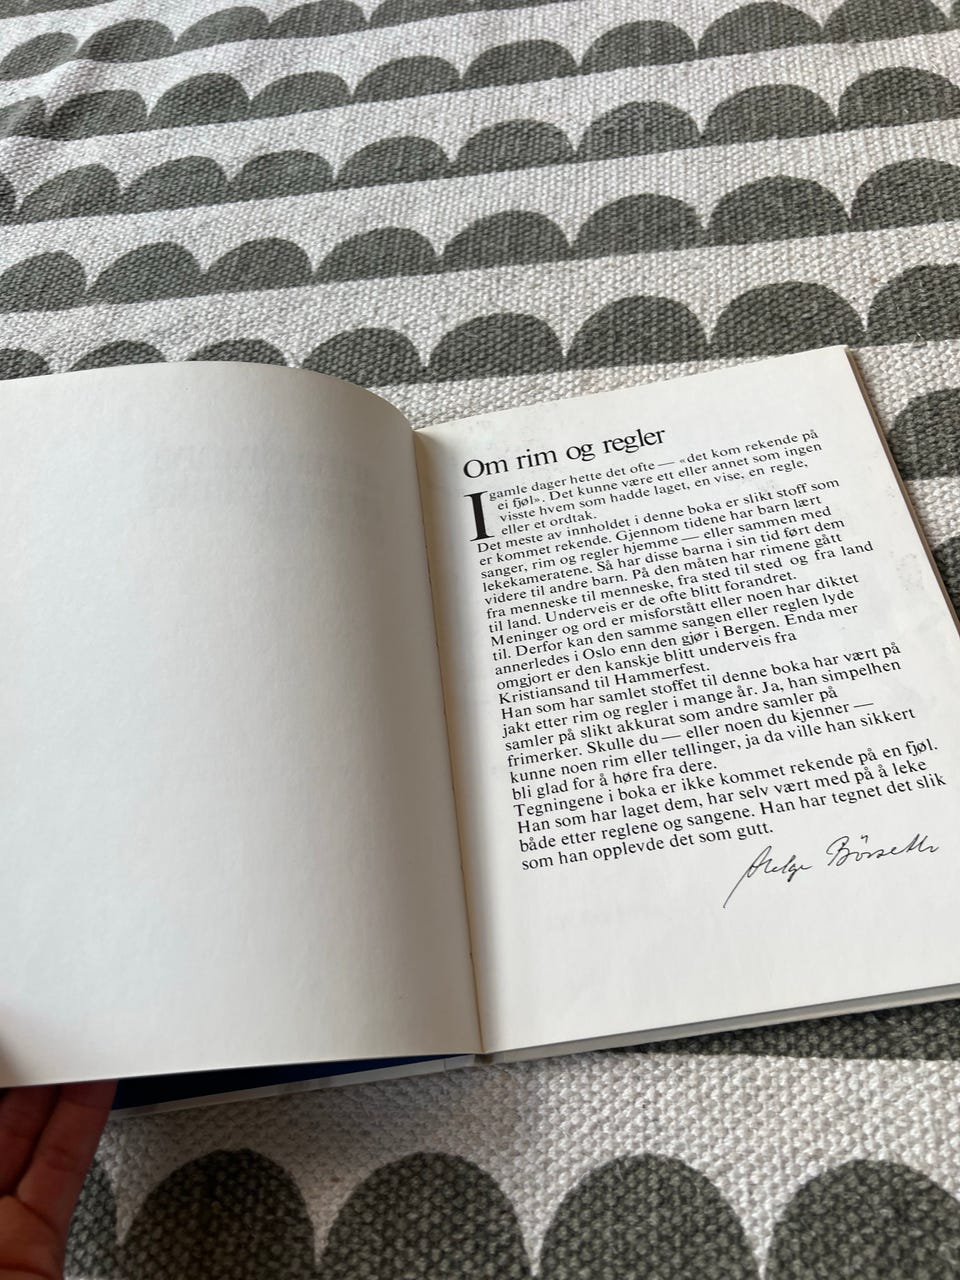 Om rim og regler
I gamle dager hette det ofte — «det kom rekende på
ei fjøl». Det kunne være ett eller annet som ingen
visste hvem som hadde laget, en vise, en regle,
eller et ordtak.
Det meste av innholdet i denne boka er slikt stoff som
er kommet rekende. Gjennom tidene har barn lært
sanger, rim og regler hjemme — eller sammen med
lekekameratene. Så har disse barna i sin tid ført dem
videre til andre barn. På den måten har rimene gått
fra menneske til menneske, fra sted til sted og fra land
til land. Underveis er de ofte blitt forandret.
Meninger og ord er misforstått eller noen har diktet
til. Derfor kan den samme sangen eller reglen lyde
annerledes i Oslo enn den gjør i Bergen. Enda mer
omgjort er den kanskje blitt underveis fra
Kristiansand til Hammerfest.
Han som har samlet stoffet til denne boka har vært på
jakt etter rim og regler i mange år. Ja, han simpelhen
samler på slikt akkurat som andre samler på
frimerker. Skulle du — eller noen du kjenner —
kunne noen rim eller tellinger, ja da ville han sikkert
bli glad for å høre fra dere.
Tegningene i boka er ikke kommet rekende på en fjøl.
Han som har laget dem, har selv vært med på å leke
både etter reglene og sangene. Han har tegnet det slik
som han opplevde det som gutt.